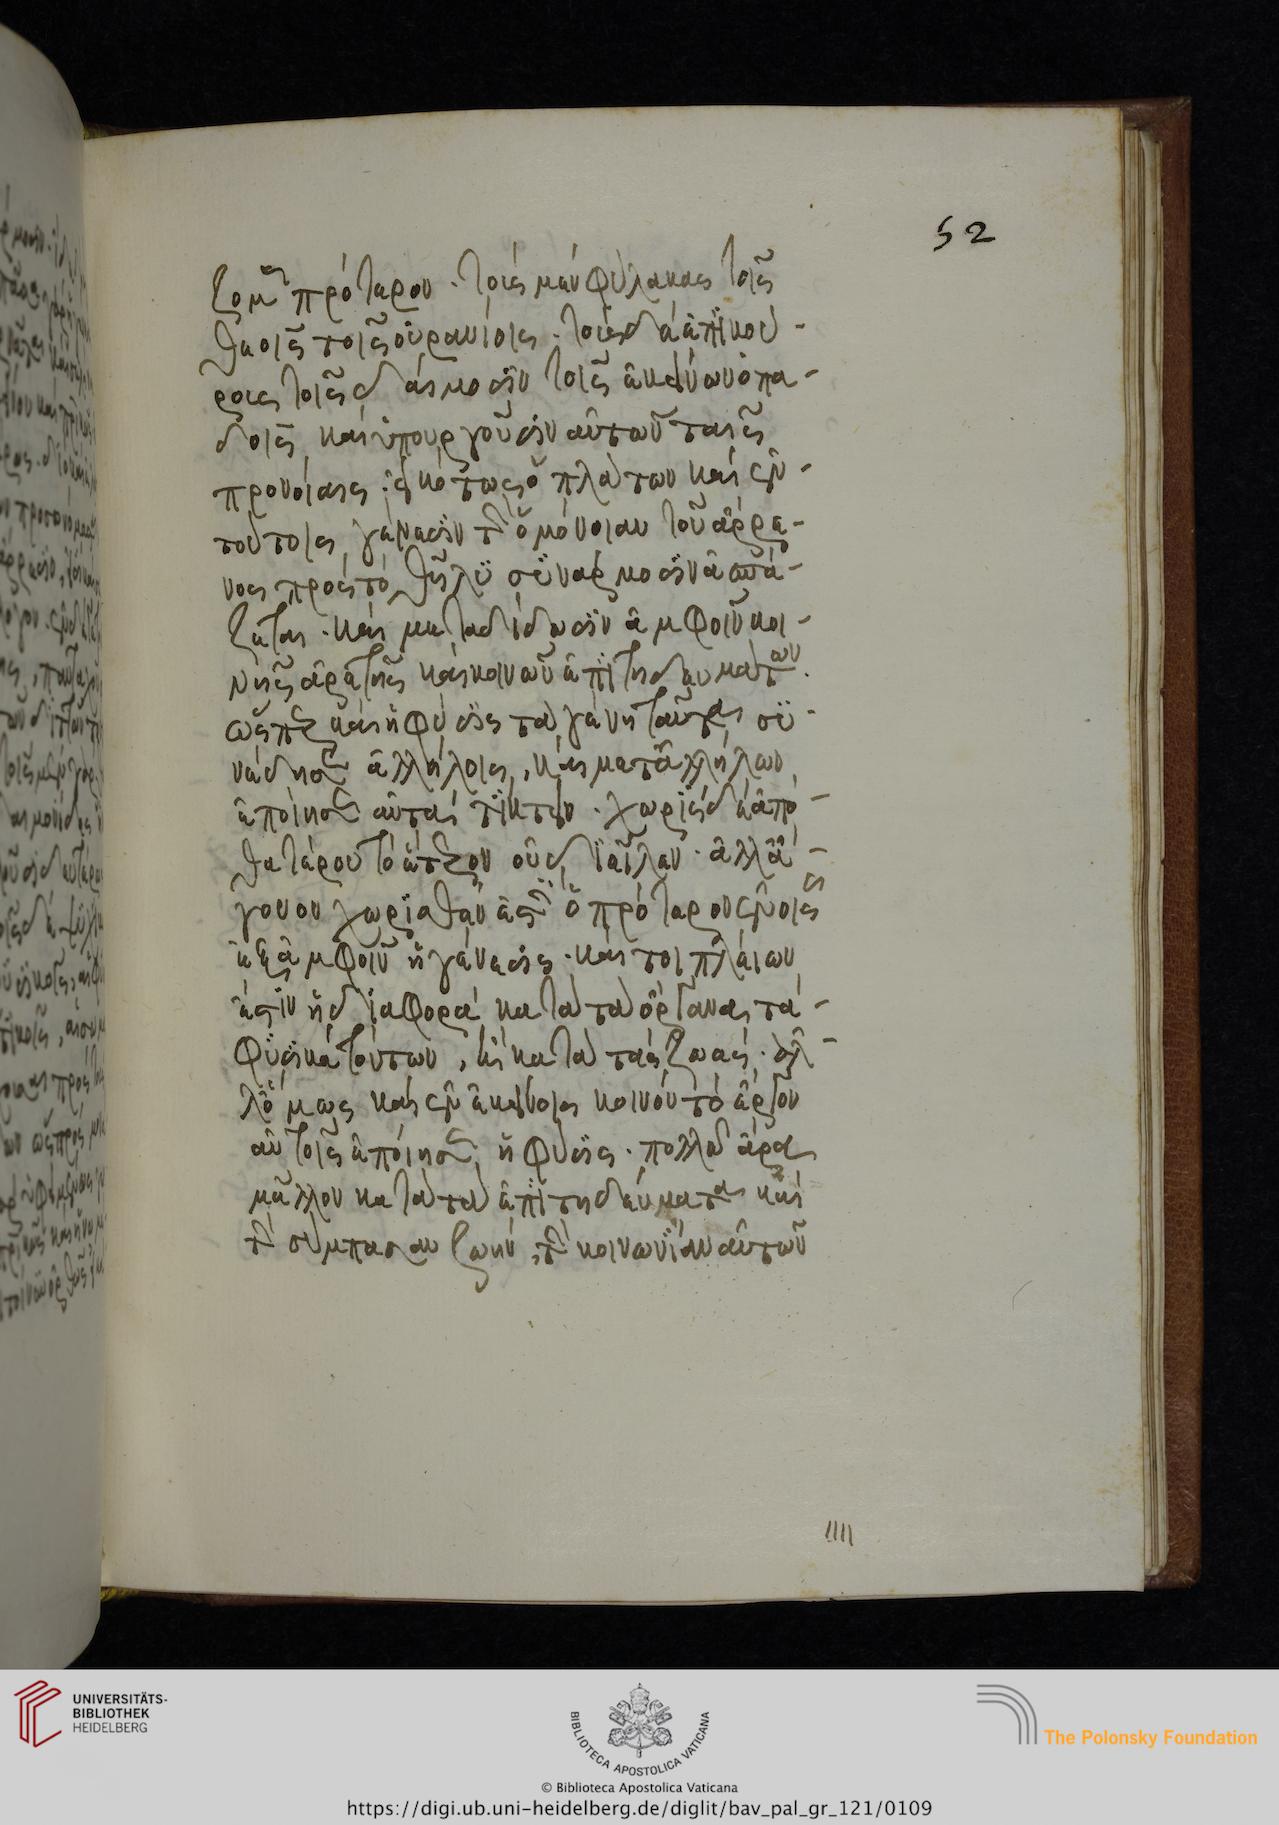 52
ζομεν πρότερον· τοὺς μὲν φύλακας τοῖς
θεοῖς τοῖς οὐρανίοις· τοὺς δὲ ἐπικού-
ρους τοῖς δαίμοσιν τοῖς ἐκείνων ὀπα-
δοῖς καὶ ὑπουργοῦσιν αὐτῶν ταῖς
προνοίαις· εἰκότως ὁ πλάτων καὶ ἐν
τούτοις γένεσιν τὴν ὁμόνοιαν τοῦ ἄρρε-
νος πρὸς τὸ θῆλυ συναρμοσιν ἀσπά-
ζεται· καὶ μεταδίδωσιν ἀμφοῖν κοι-
νῆς ἀρετῆς καὶ κοινῶν ἐπιτηδευμάτων·
ὥσπερ καὶ ἡ φύσις τὰ γένη ταῦτα συ-
νέδησεν ἀλλήλοις, καὶ μετ' ἀλλήλων
ἐποίησεν αὐτὰ τίκτειν· χωρὶς δὲ ἀπὸ
θατέρου τὸ ἕτερον οὐδ
γονον χωρισθὲν ἐστιν ὃ πρότερον ἐν οἷς
ἐξ ἀμφοῖν ἡ γένεσις· καί τοι πλείων
ἐστὶν ἡ διαφορὰ κατὰ τὰ ὄργανα τὰ
φυσικὰ τούτων, ἢ κατὰ τὰς ζωάς· ἀλ-
λ' ὅμως καὶ ἐν ἐκείνοις κοινὸν τὸ ἔργον
αὐτοῖς ἐποίησεν ἡ φύσις· πολλῷ ἄρα
μᾶλλον κατὰ τὰ ἐπιτηδεύματα καὶ
τὴν σύμπασαν ζωὴν, τὴν κοινωνίαν αὐτῶν
UNIVERSITÄTS-
BIBLIOTHEK
HEIDELBERG
BIBLIOTECA APOSTOLICA VATICANA
The Polonsky Foundation
© Biblioteca Apostolica Vaticana
https://digi.ub.uni-heidelberg.de/diglit/bav_pal_gr_121/0109